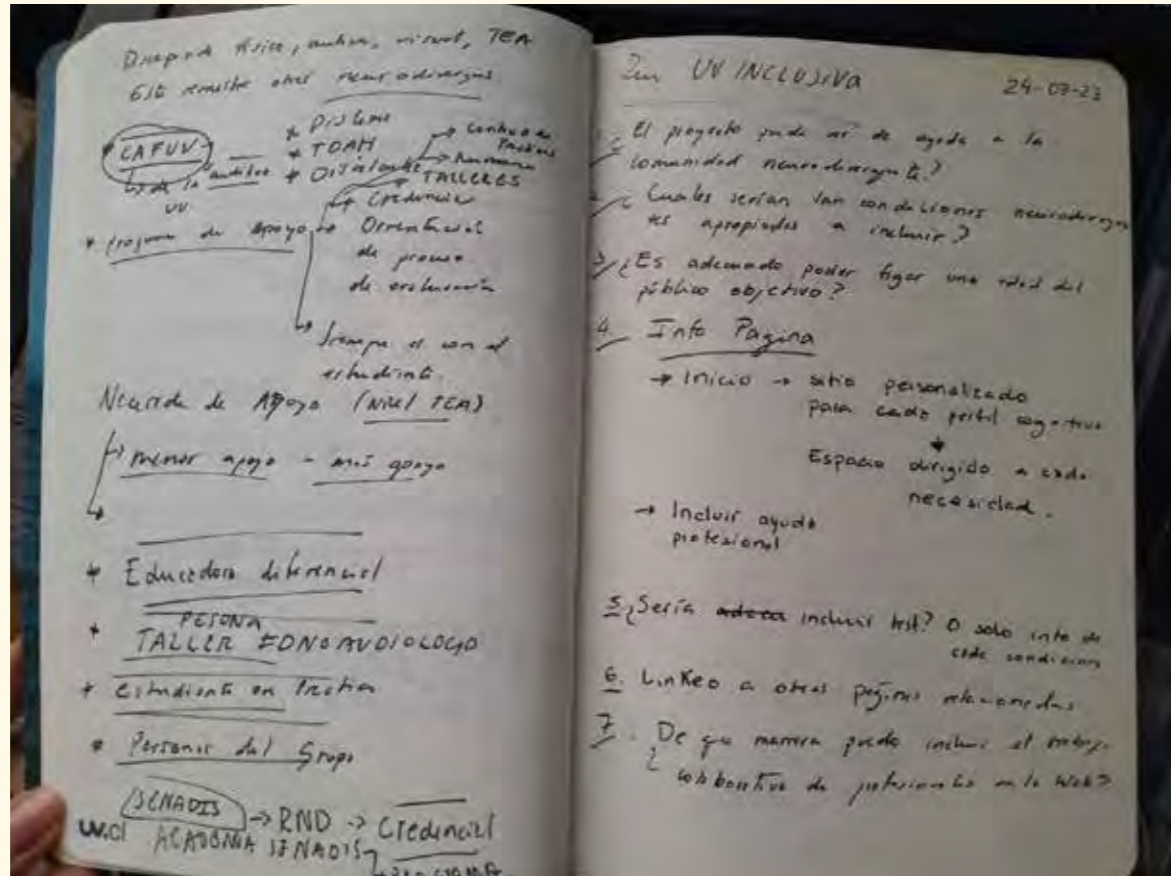 física, auditiva, visual, TEA
Este semestre otras neurodivergen
* CAFUV
↳ de la auditiva
UV
* Dislexia
* TDAH
* Discalculia
→ TALLERES
* Programa de Apoyo
→ Credencial
→ Orientación
de proceso
de evaluación
↳ Siempre es con el
estudiante.
de Apoyo (Nivel TEA)
↳ menor apoyo - más apoyo
* Educadora diferencial
PESONA
* TALLER FONOAUDIOLOGO
* Estudiante en Práctica
* Personas del Grupo
SENADIS → RND → Credencial
ACADEMIA SENADIS
uv.cl
UV INCLUSIVA 24-07-23
1. ¿El proyecto puede ser de ayuda a la
comunidad neurodivergente?
2. ¿Cuales serían las condiciones neurodivergen
tes apropiadas a incluir?
3. ¿Es adecuado poder fijar una edad del
público objetivo?
4. Info Pagina
→ Inicio → sitio personalizado
para cada perfil cognitivo
Espacio dirigido a cada
necesidad.
→ Incluir ayuda
profesional
5. ¿Sería incluir test? O solo info de
cada condicion
6. Linkeo a otras páginas relacionadas
7. ¿De que manera puedo incluir el trabajo
colaborativo de profesionales en la web?